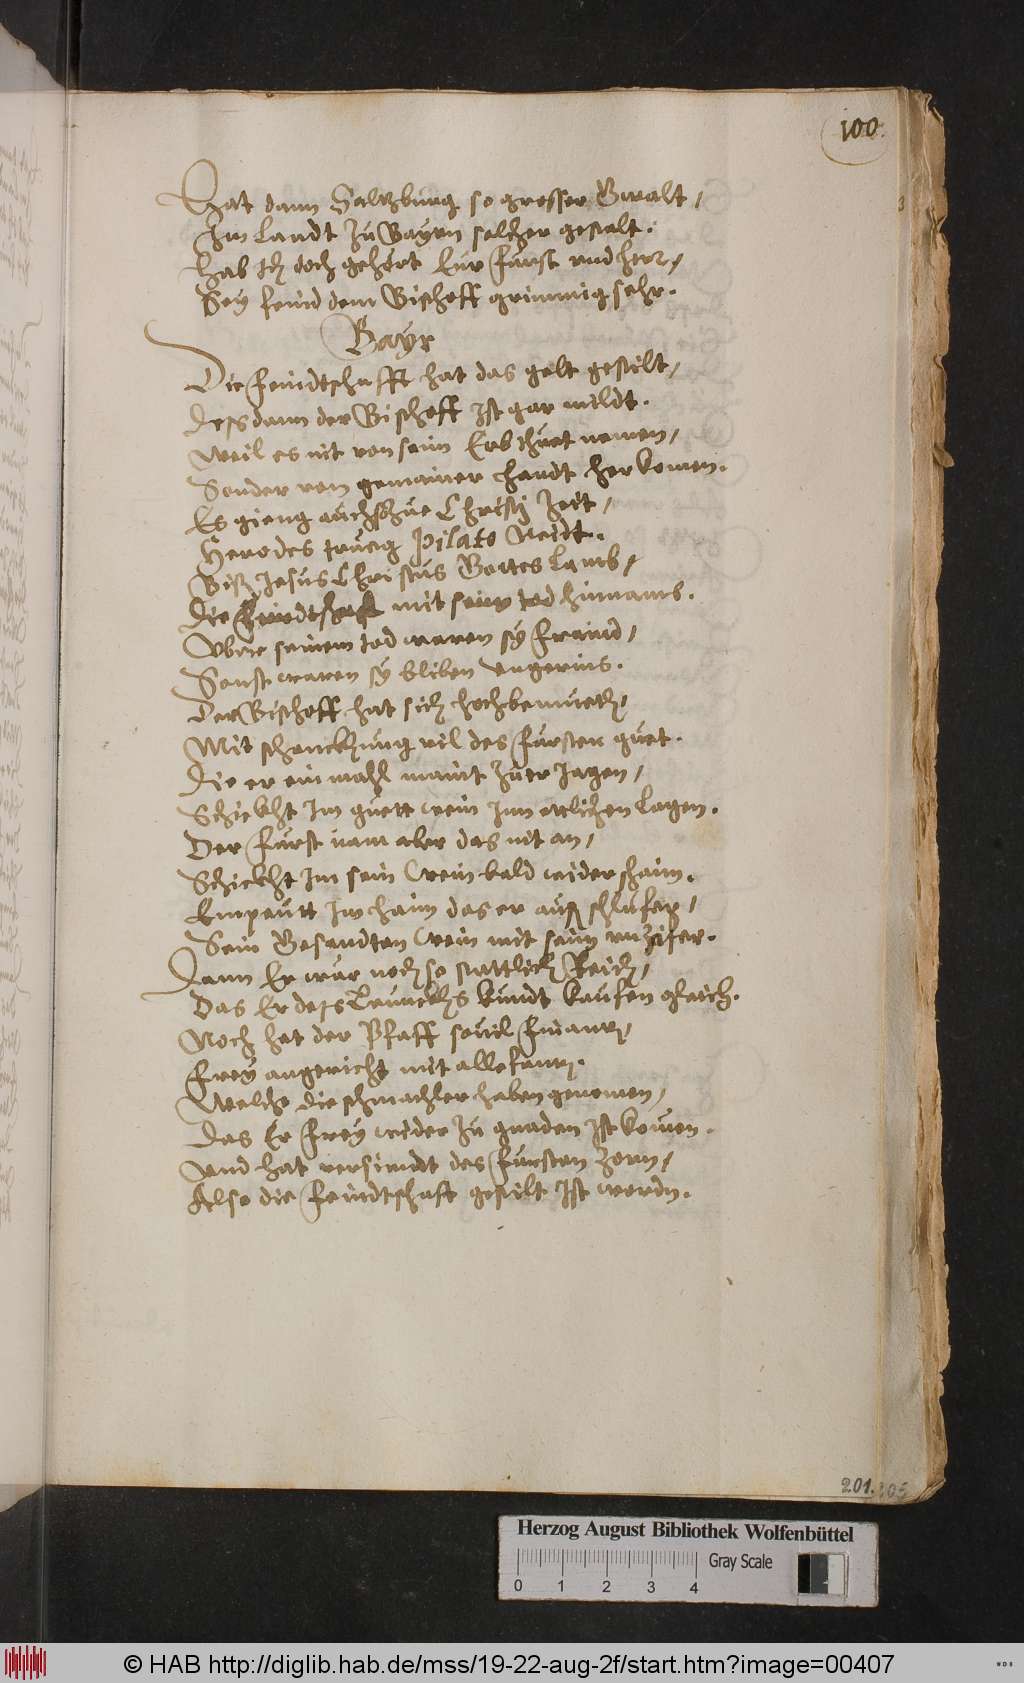 100.
Hat dann Saltzburg so grosser Gwalt /
Im landt zu Bayrn solcher gestalt.
Hab ich doch gehört Eur Fürst vnd herr /
Sey feind dem Bischoff grimmig sehr.
Bayr
Die Feindtschafft hat das gelt gestilt /
Dess dann der Bischoff ist gar mildt.
Weil es nit von seim Erb thuet nemen /
Sonder von gemainer handt her komen.
Es gieng auch zue Christi Zeit /
Herodes trueg Pilato Neidt.
Biß Jesus Christus Gottes Lamb /
Die Feindtschaft mit seim tod hinnamb.
Vber seinem tod waren sy Freund /
Sonst waren sy bliben
Der Bischoff hat sich hoch bemueth /
Mit schenckhung vil des Fürsten guet.
Die er ein mahl maint zuer Jagen /
Schickht Im guett wein Inn etlichen lagen.
Der Fürst nam aber das nit an /
Schickht Im sein Wein bald wider haim.
Empeutt Im haim das er auß
Sein Gesandten Wein mit seim vnzifer.
Dann Er wär noch so stattlich Reich /
Das Er dess Trunckhs kundt kaufen gleich.
Noch hat der Pfaff souil Finantz /
Frey angericht mit allefantz.
Welche die schmachler haben genomen /
Das Er Frey wider zu gnaden ist komen.
Vnd hat versündt des Fürsten zorn /
Also die Feindtschaft gestilt Ist wordn.
201.
Herzog August Bibliothek Wolfenbüttel
Gray Scale
0 1 2 3 4
© HAB http://diglib.hab.de/mss/19-22-aug-2f/start.htm?image=00407